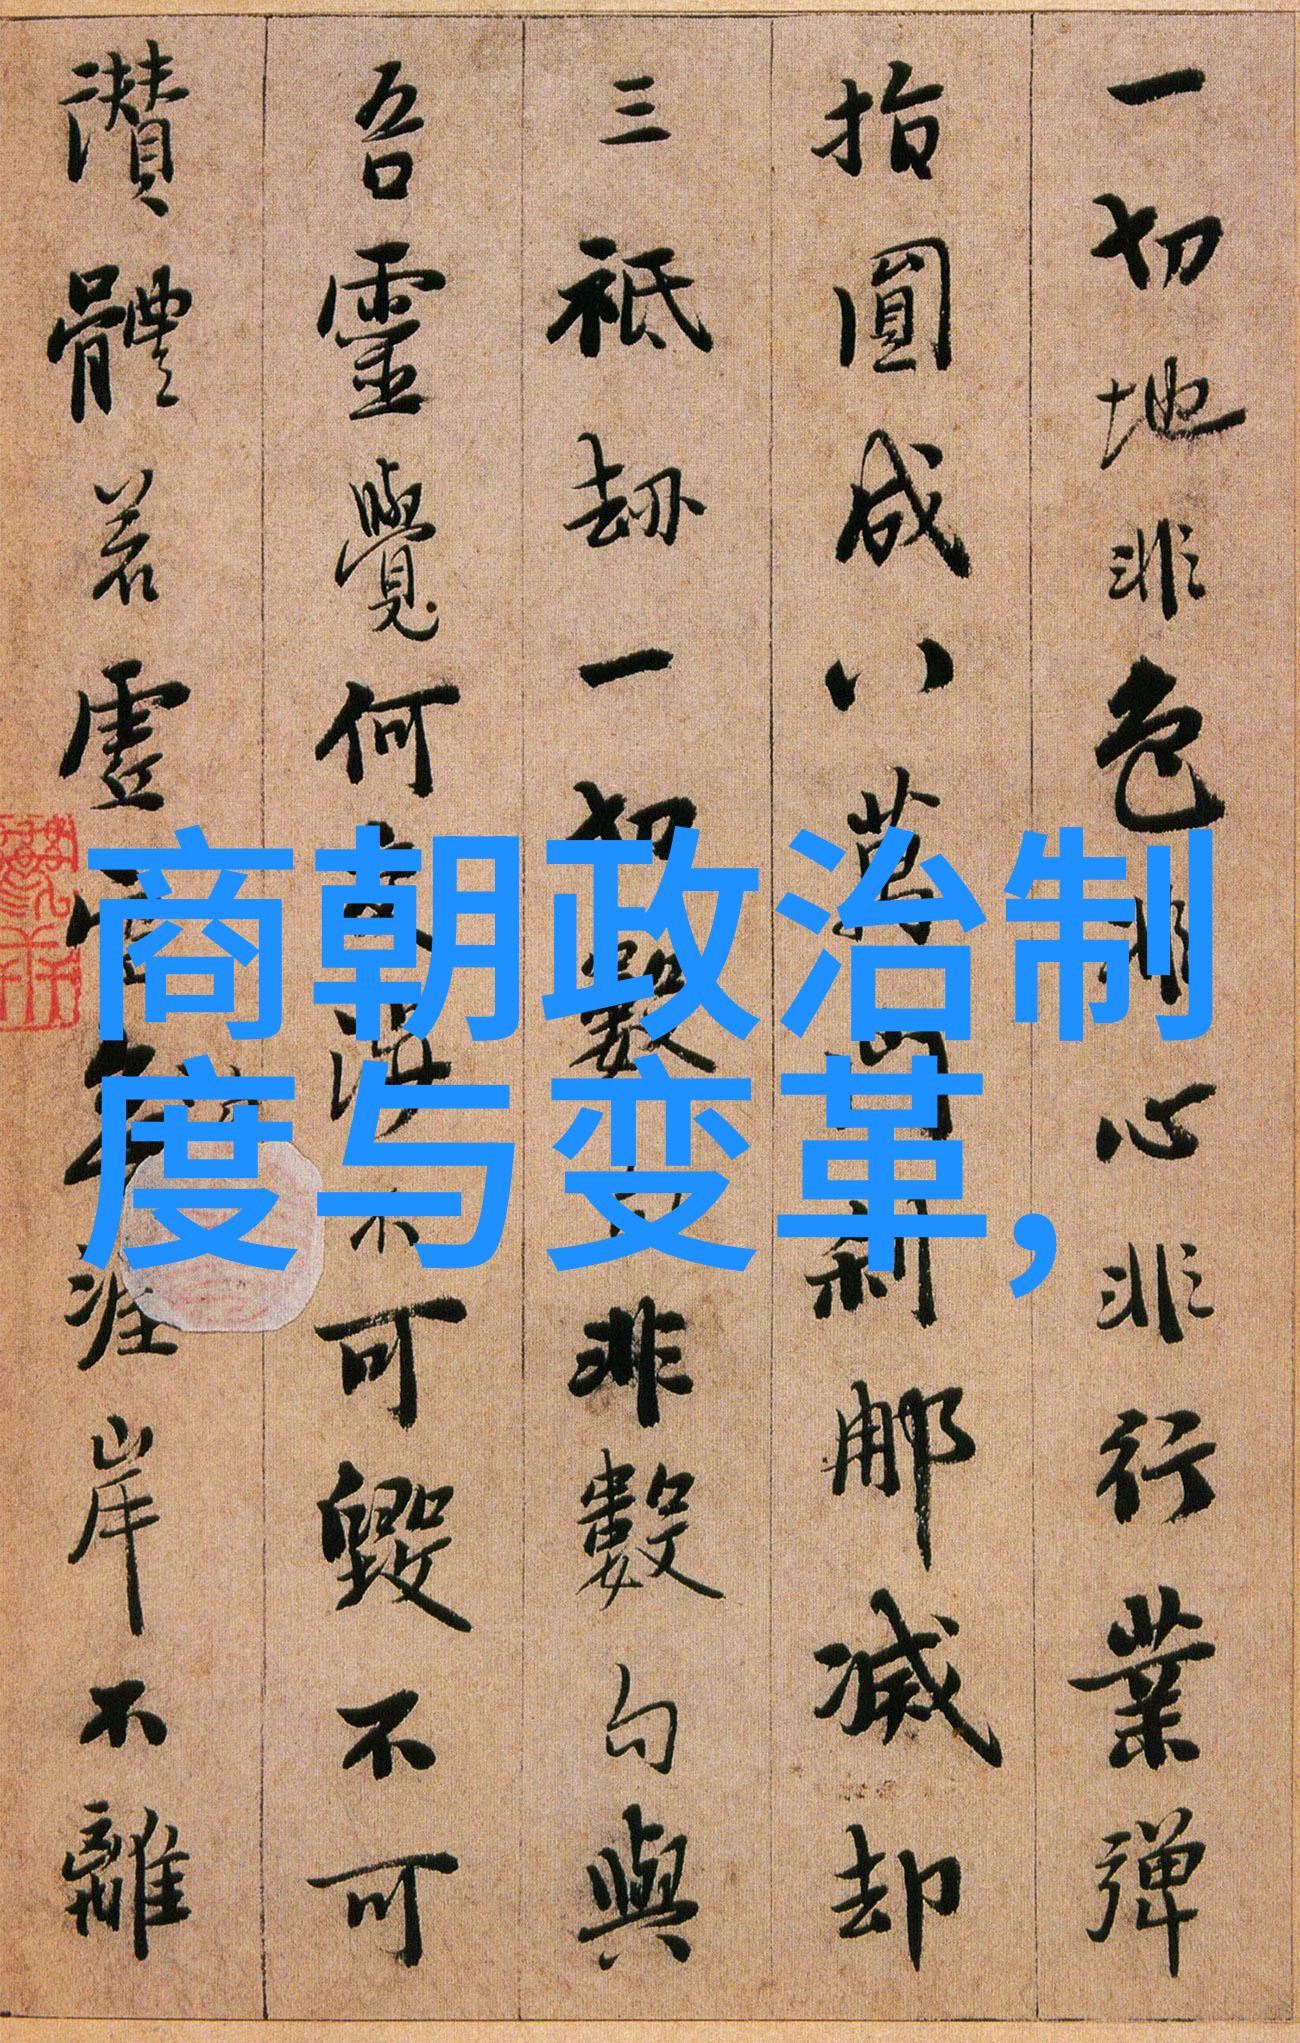 一切地非色非心非行業彈
指圓成八萬門刹那滅却
三祇劫一切數句非數句與
吾靈覺何交涉不可毀不可
讚體若虛空涯岸不離
商朝政治制
度与变革,